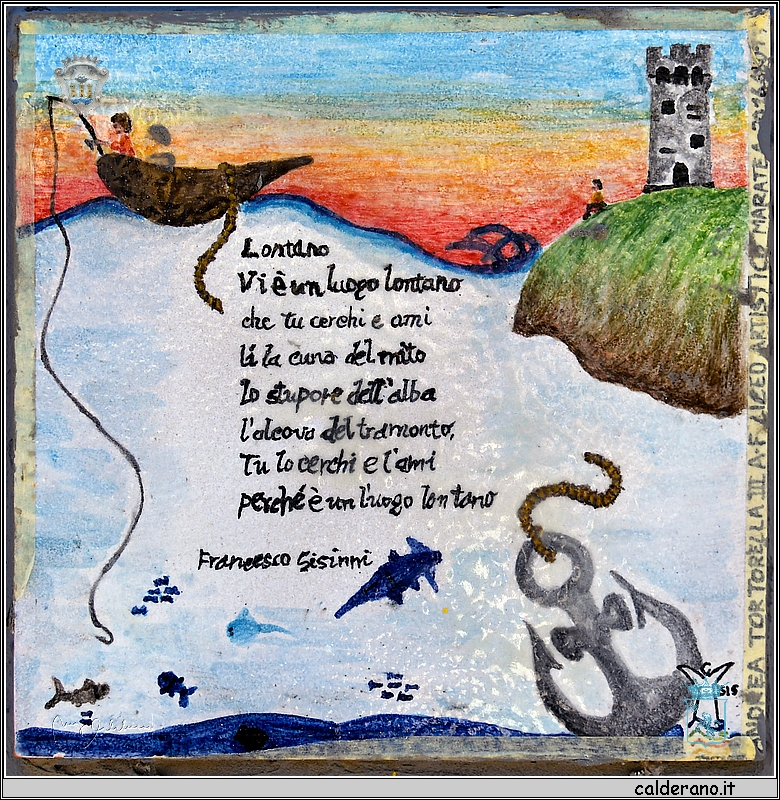 Lontano
Vi è un luogo lontano
che tu cerchi e ami
lì la cuna del mito
lo stupore dell'alba
l'alcova del tramonto,
Tu lo cerchi e l'ami
perché è un luogo lontano
Francesco Sisinni
ANDREA TORTORELLA III A.F. LICEO ARTISTICO MARATEA
SIS
calderano.it